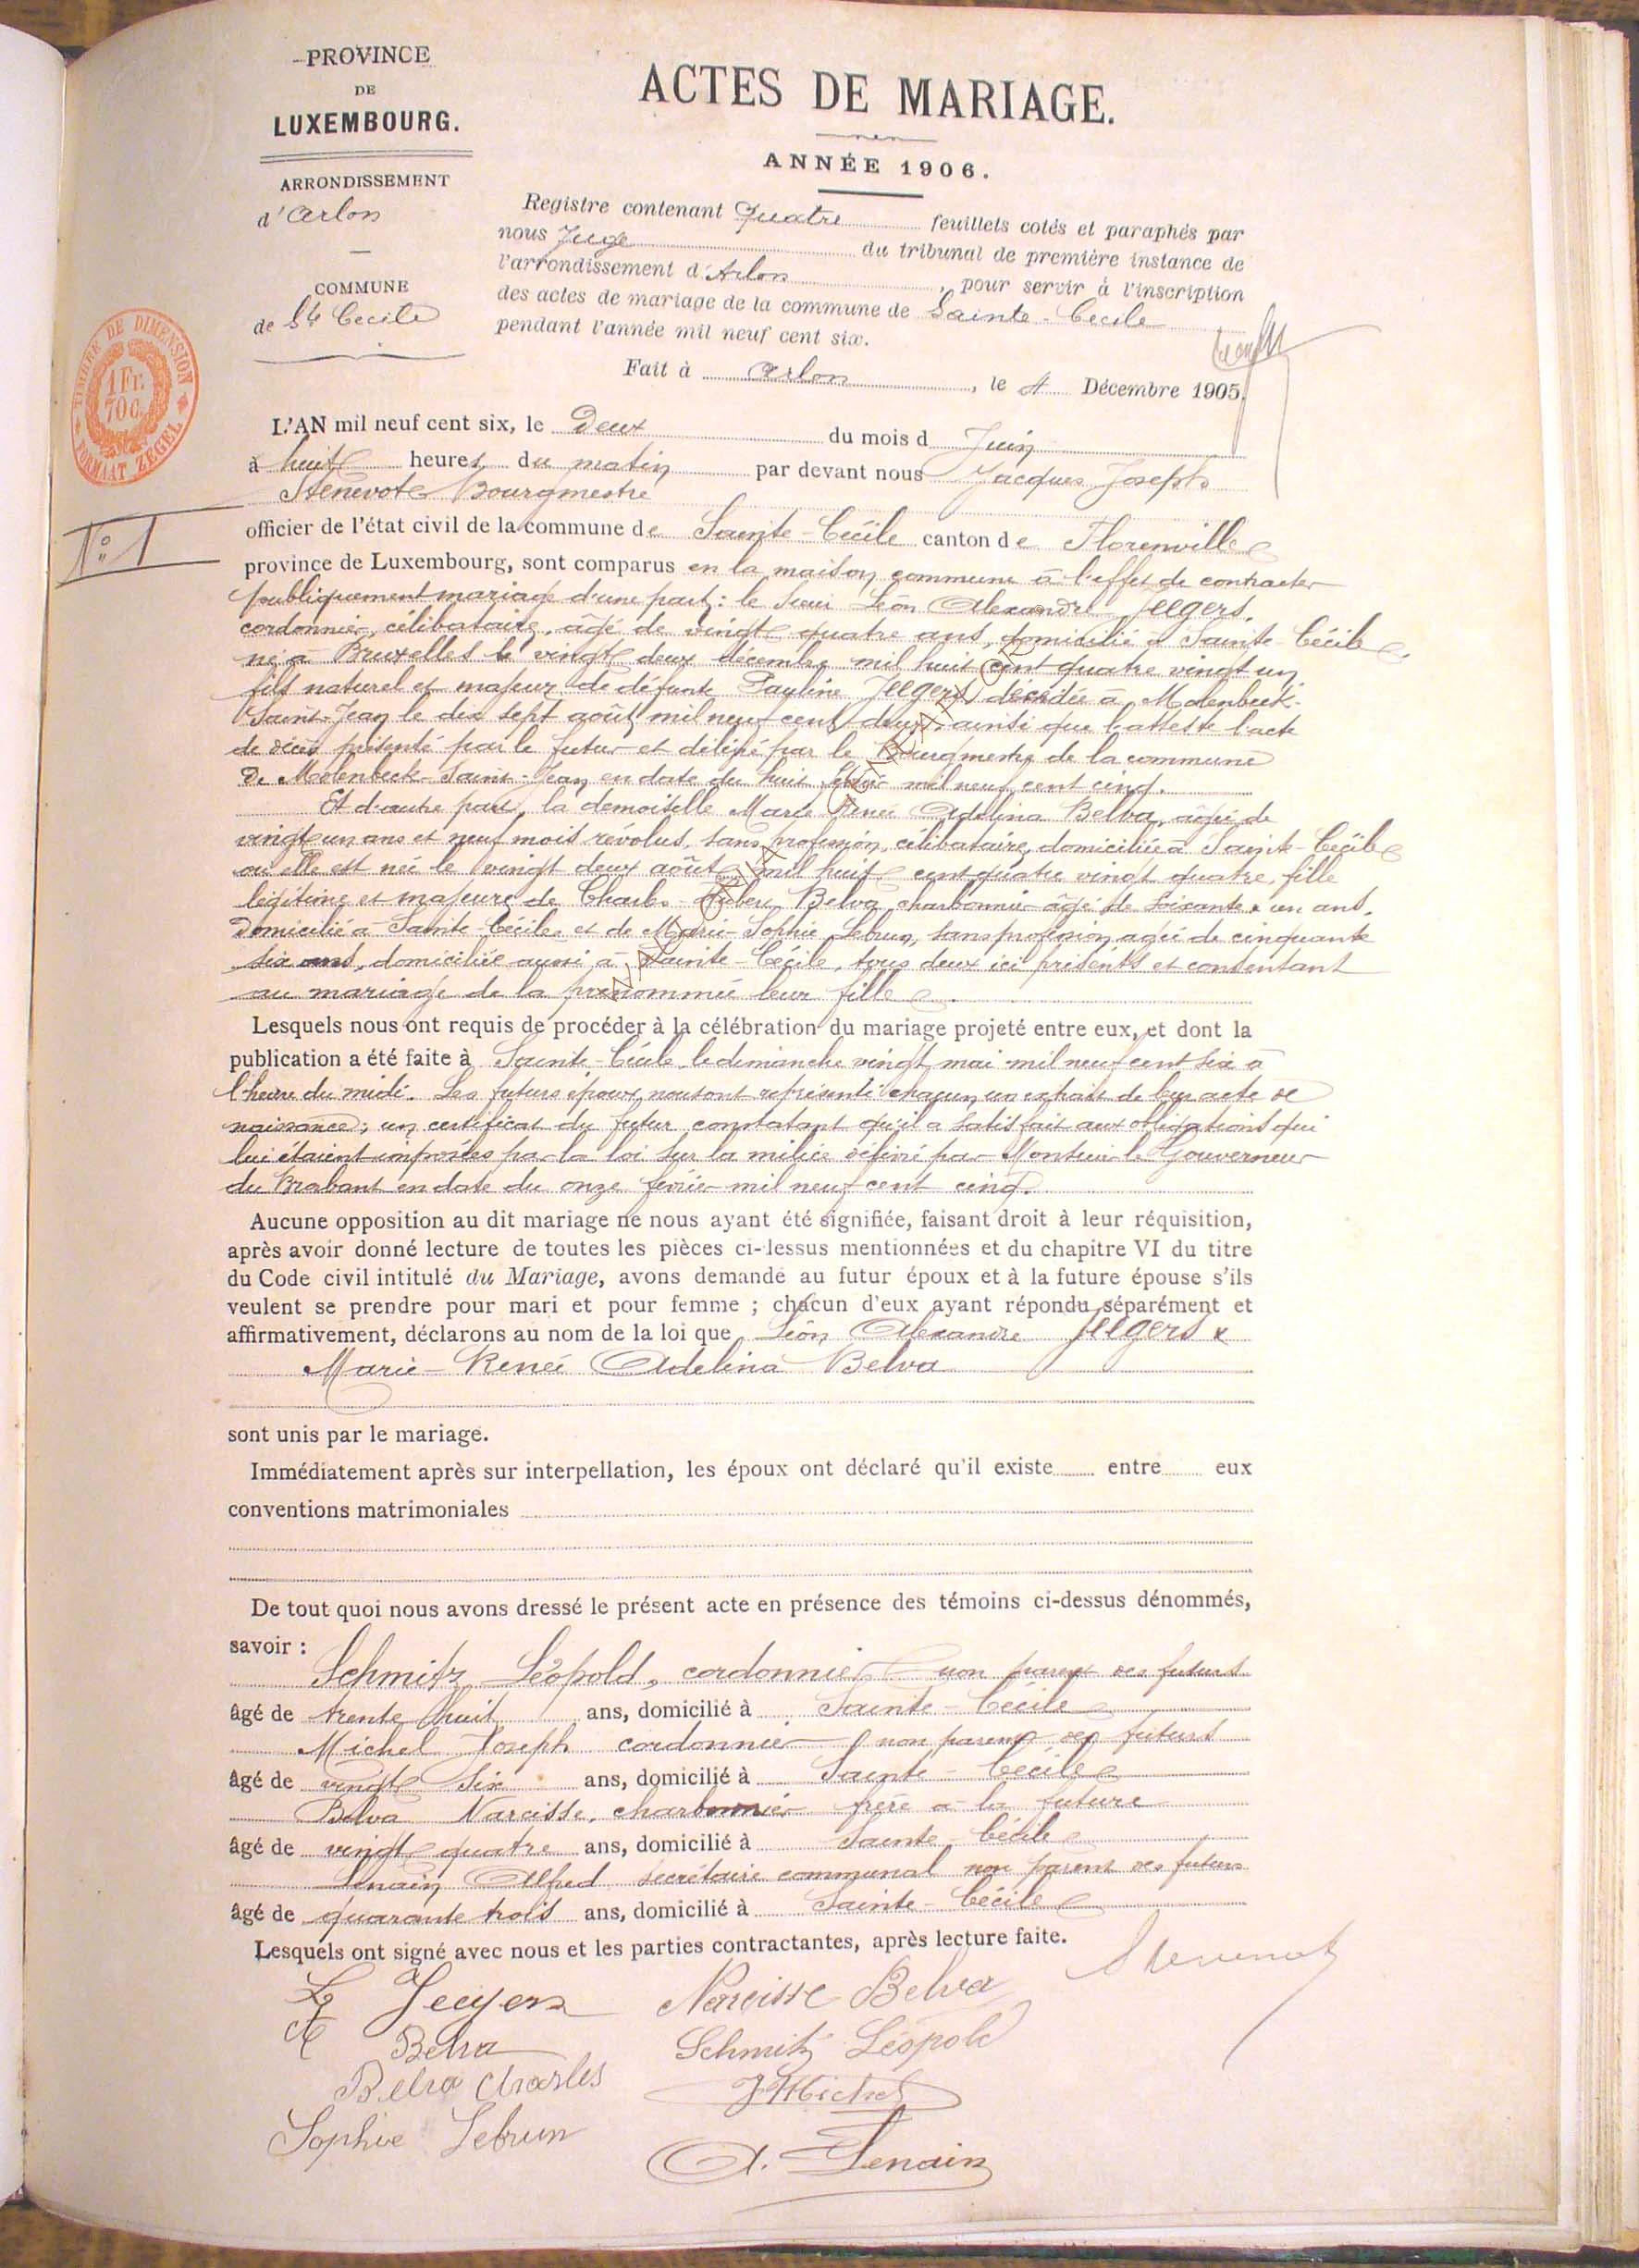 PROVINCE
DE
LUXEMBOURG.
ARRONDISSEMENT
d'Arlon
COMMUNE
de Ste Cecile
ACTES DE MARIAGE.
ANNÉE 1906.
Registre contenant Quatre feuillets cotés et paraphés par
nous Juge du tribunal de première instance de
l'arrondissement d'Arlon, pour servir à l'inscription
des actes de mariage de la commune de Sainte-Cecile
pendant l'année mil neuf cent six.
Fait à Arlon, le 4 Décembre 1905.
TIMBRE DE DIMENSION
1 Fr.
70 C.
FORMAAT ZEGEL
N° 1
L'AN mil neuf cent six, le Deux du mois d Juin
à huit heures du matin par devant nous Jacques Joseph
Stenevote Bourgmestre
officier de l'état civil de la commune de Sainte-Cécile canton de Florenville
province de Luxembourg, sont comparus en la maison commune à l'effet de contracter
publiquement mariage d'une part: le sieur Léon Alexandre Jeegers,
cordonnier, célibataire, âgé de vingt quatre ans, domicilié à Sainte-Cécile
né à Bruxelles le vingt deux décembre mil huit cent quatre vingt un
fils naturel et majeur de défunte Pauline Jeegers décédée à Molenbeek-
Saint-Jean le dix sept août mil neuf cent deux, ainsi que l'atteste l'acte
de décès présenté par le futur et délivré par le Bourgmestre de la commune
de Molenbeek-Saint-Jean en date du huit mil neuf cent cinq.
Et d'autre part, la demoiselle Marie Renée Adelina Belva, âgée de
vingt un ans et neuf mois révolus, sans profession, célibataire, domiciliée à Sainte-Cécile
où elle est née le vingt deux août mil huit cent quatre vingt quatre, fille
légitime et majeure de Charles Belva charbonnier âgé de soixante un ans,
domicilié à Sainte-Cécile et de Marie-Sophie Lebrun, sans profession agée de cinquante
six ans, domiciliée aussi à Sainte-Cécile, tous deux ici présents et consentant
au mariage de la prénommée leur fille.
Lesquels nous ont requis de procéder à la célébration du mariage projeté entre eux, et dont la
publication a été faite à Sainte-Cécile le dimanche vingt mai mil neuf cent six à
l'heure du midi. Les futurs époux nous ont représenté chacun un extrait de leur acte de
naissance; un certificat du futur constatant qu'il a satisfait aux obligations qui
lui étaient imposées par la loi sur la milice délivré par Monsieur le Gouverneur
du Brabant en date du onze février mil neuf cent cinq.
Aucune opposition au dit mariage ne nous ayant été signifiée, faisant droit à leur réquisition,
après avoir donné lecture de toutes les pièces ci-dessus mentionnées et du chapitre VI du titre
du Code civil intitulé du Mariage, avons demandé au futur époux et à la future épouse s'ils
veulent se prendre pour mari et pour femme ; chacun d'eux ayant répondu séparément et
affirmativement, déclarons au nom de la loi que Léon Alexandre Jeegers &
Marie-Renée Adelina Belva
sont unis par le mariage.
Immédiatement après sur interpellation, les époux ont déclaré qu'il existe entre eux
conventions matrimoniales
De tout quoi nous avons dressé le présent acte en présence des témoins ci-dessus dénommés,
savoir :
Schmitz Léopold, cordonnier non parent des futurs
âgé de trente huit ans, domicilié à Sainte-Cécile
Michel Joseph cordonnier non parent des futurs
âgé de vingt six ans, domicilié à Sainte-Cécile
Belva Narcisse, charbonnier frère à la future
âgé de vingt quatre ans, domicilié à Sainte-Cécile
Lenain Alfred secrétaire communal non parent des futurs
âgé de quarante trois ans, domicilié à Sainte-Cécile
Lesquels ont signé avec nous et les parties contractantes, après lecture faite.
L Jeegers Narcisse Belva
Belva Schmitz Léopold
Belva Charles J Michel
Sophie Lebrun A. Lenain